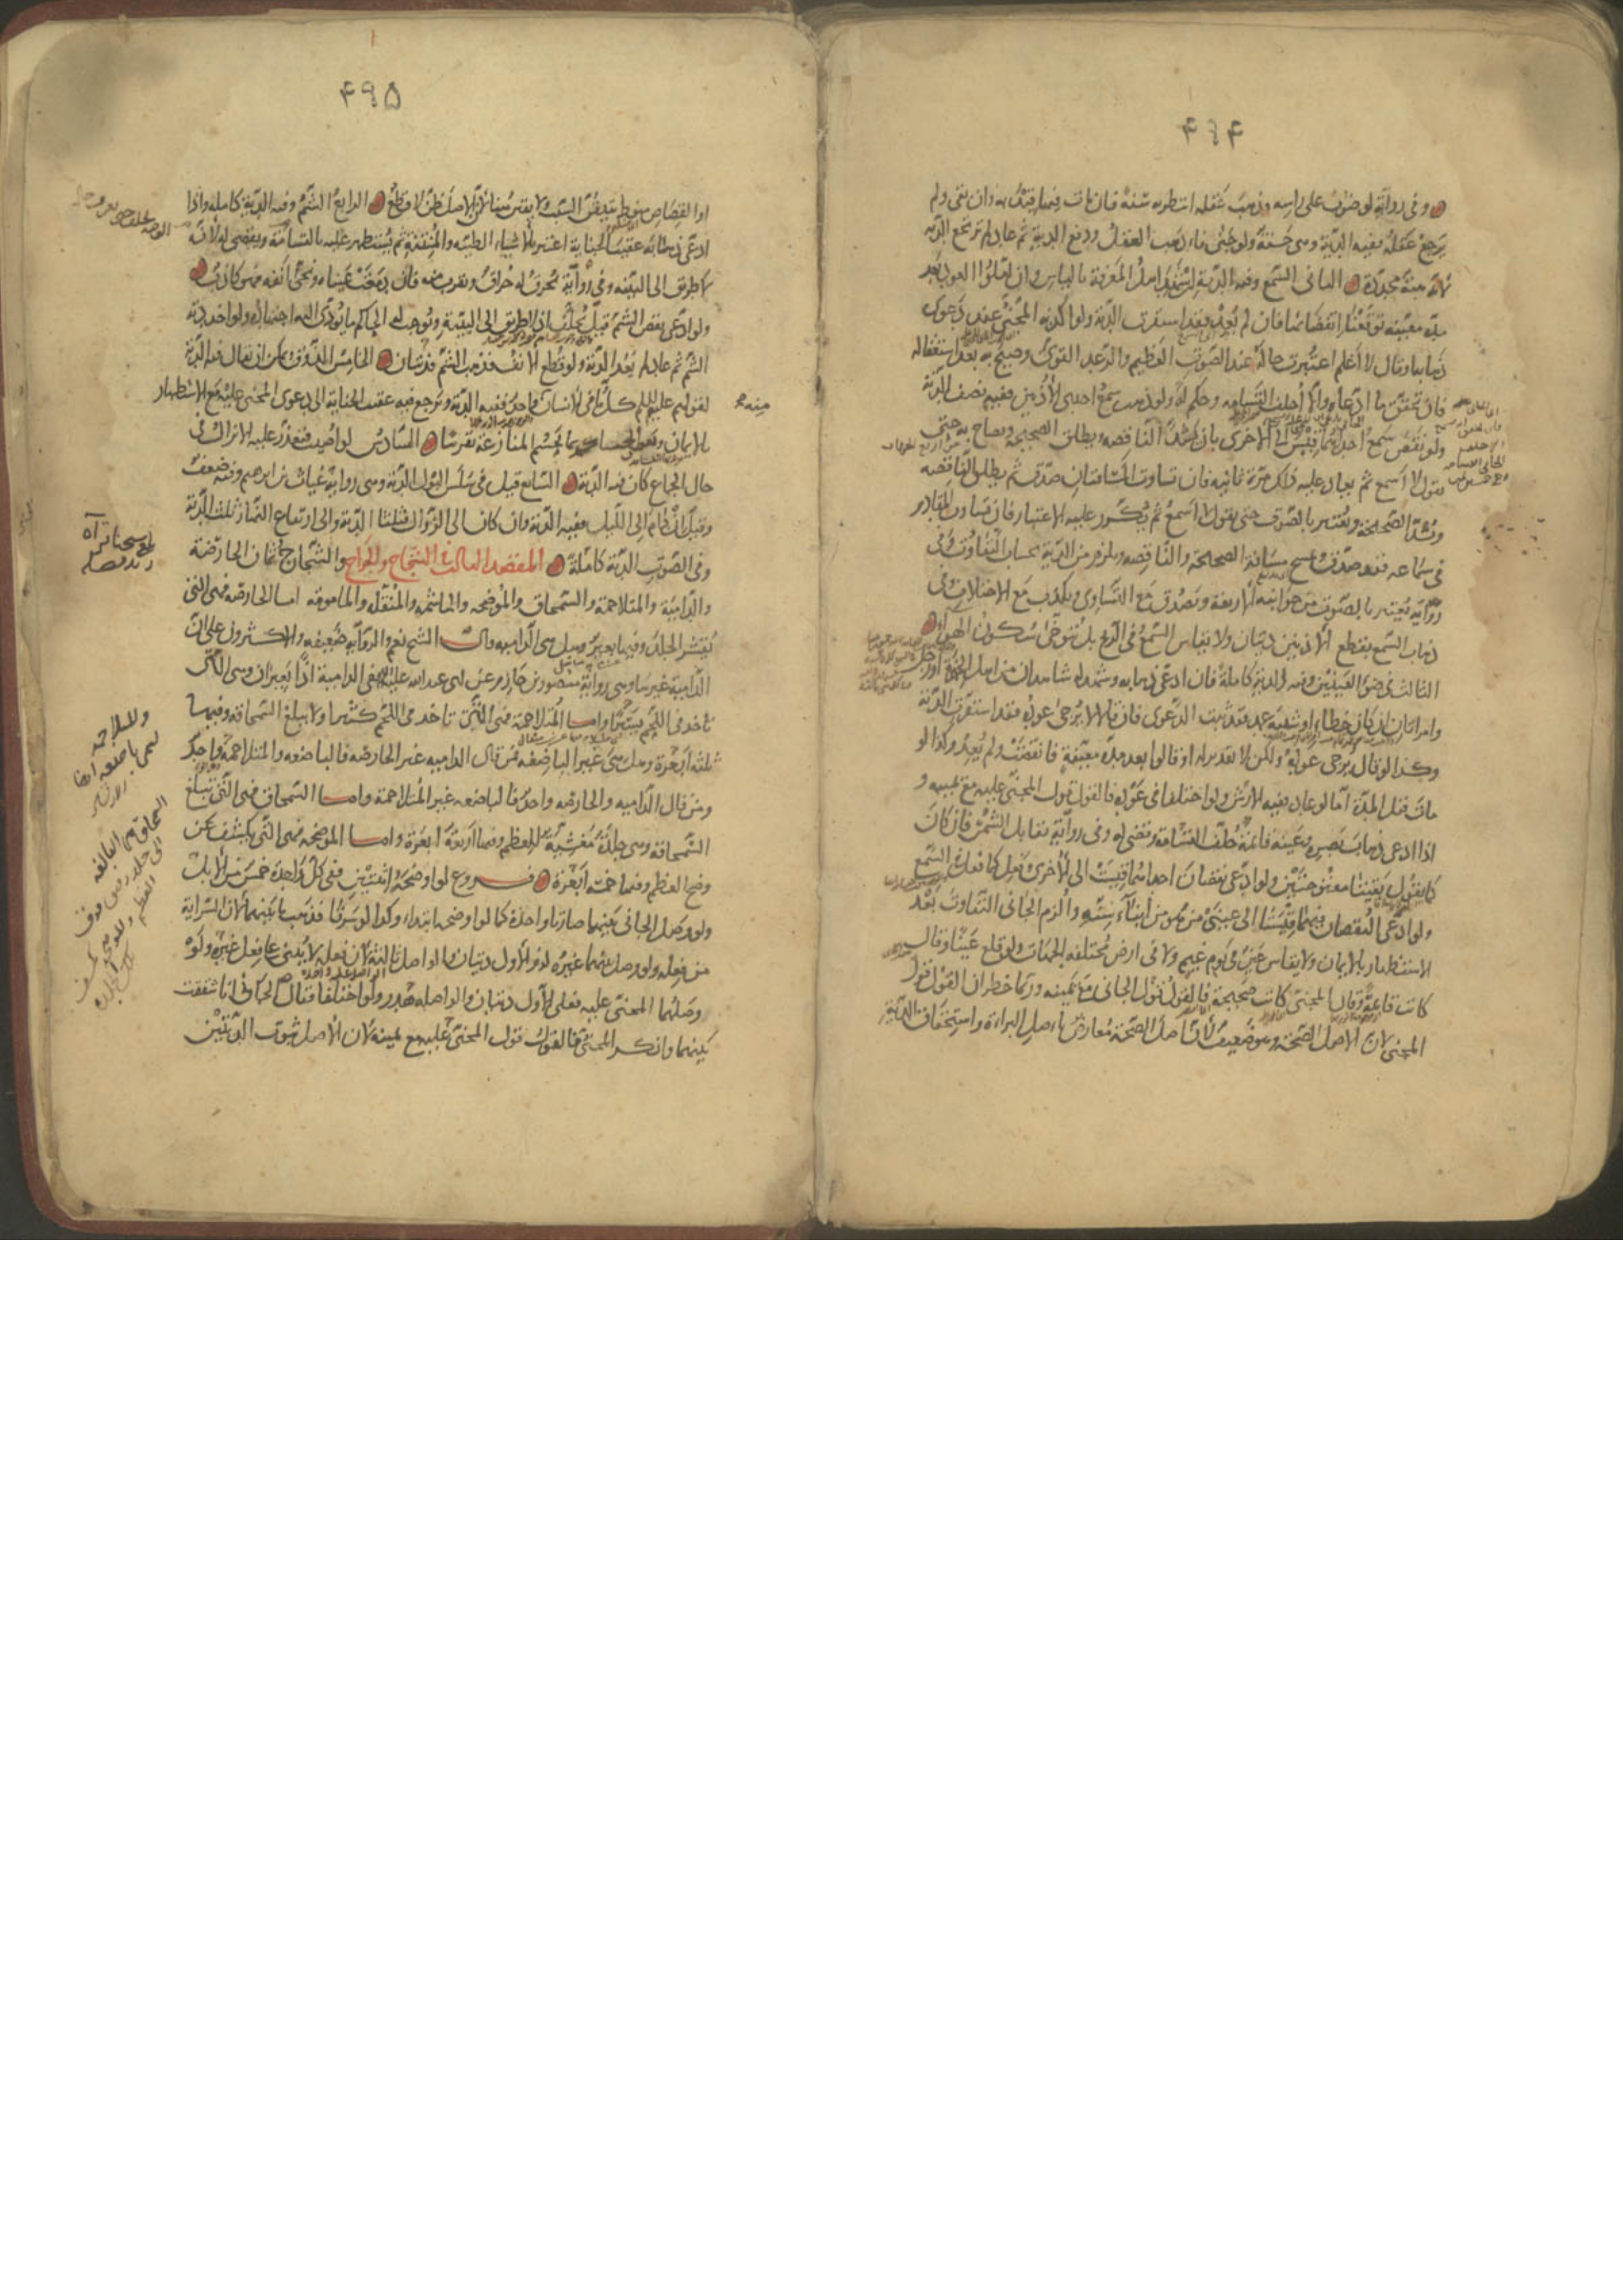 ۴۹۴
وفي رواية لو ضرب على راسه فذهب عقله انتظر به سنة فان مات فيها قيد به وان بقي ولم
يرجع عقله ففيه الدية وهي حسنة ولو جنى فاذهب العقل ودفع الدية ثم عاد لم يرتجع الدية
لانه هبة مجددة الثاني السمع وفيه الدية ان شهد اهل المعرفة بالياس وان املوا العود بعد
مدة معينة توقعنا انقضاءها فان لم يعد فقد استقرت الدية ولو اكذبه الجاني عند دعوى
ذهابه او قال لا اعلم اعتبرت حاله عند الصوت العظيم والرعد القوي وصيح به بعد استغفاله
فان تحقق ما ادعاه والا احلف القسامة وحكم له ولو ذهب سمع احدى الاذنين ففيه نصف الدية
ولو نقص سمع احدهما قيس الى الاخرى بان تسد الناقصة ويطلق الصحيحة ويصاح به حتى
يقول لا اسمع ثم يعاد عليه ذلك مرة ثانية فان تساوت المسافتان صدق ثم يطلق الناقصة
وتسد الصحيحة ويعتبر بالصوت حتى يقول لا اسمع ثم يكرر عليه الاعتبار فان تساوت المقادير
في سماعه فقد صدق وتمسح مسافة الصحيحة والناقصة ويلزم من الدية بحساب التفاوت وفي
رواية يعتبر بالصوت من جوانبه الاربعة ويصدق مع التساوي ويكذب مع الاختلاف وفي
ذهاب السمع بقطع الاذنين ديتان ولا يقاس السمع في الريح بل يتوخى سكون الهواء
الثالث في ضوء العينين وفيه الدية كاملة فان ادعى ذهابه وشهد له شاهدان من اهل الخبرة او رجل
وامراتان ان كان خطاء او شبيه عمد فقد ثبت الدعوى فان قالا لا يرجى عوده فقد استقرت الدية
وكذا لو قال يرجى عوده ولكن لا تقدير له او قالوا بعد مدة معينة فانقضت ولم يعد وكذا لو
مات قبل المدة اما لو عاد ففيه الارش ولو اختلفا في عوده فالقول قول المجني عليه مع يمينه و
اذا ادعى ذهاب بصره وعينه قائمة احلف القسامة وقضى له وفي رواية تقابل بالشمس فان كان
كما يقول بقيتا مفتوحتين ولو ادعى نقصان احداهما قيست الى الاخرى وفعل كما فعل في السمع
ولو ادعى النقصان فيهما قيستا الى عيني من هو من ابناء سنه والزم الجاني التفاوت بعد
الاستظهار بالايمان ولا يقاس عين في يوم غيم ولا في ارض مختلفة الجهات ولو قلع عينا وقال
كانت قائمة وقال المجني كانت صحيحة فالقول قول الجاني مع يمينه وربما خطر ان القول قول
المجني لان الاصل الصحة وهو ضعيف لان اصل الصحة معارض باصل البراءة واستحقاق الدية
۴۹۵
او القصاص منوط بتيقن السبب ولا يقين هنا لان الاصل ظن لا قطع الرابع الشم وفيه الدية كاملة واذا
ادعى ذهابه عقيب الجناية اعتبر بالاشياء الطيبة والمنتنة ثم يستظهر عليه بالقسامة ويقضى له لانه
لا طريق الى البينة وفي رواية يحرق له حراق ويقرب منه فان دمعت عيناه ونحى انفه فهو كاذب
ولو ادعى نقص الشم قيل يحلف اذ لا طريق الى البينة ويوجب له الحاكم ما يؤدي اليه اجتهاده ولو اخذ دية
الشم ثم عاد لم يعد الدية ولو قطع الانف فذهب الشم فديتان الخامس الذوق يمكن ان يقال فيه الدية
لقولهم عليهم السلام كل ما في الانسان منه واحد ففيه الدية ويرجع فيه عقيب الجناية الى دعوى المجني عليه مع الاستظهار
بالايمان ومع النقصان يقضي الحاكم بما يحسم المنازعة تقريبا السادس لو اصيب فتعذر عليه الانزال في
حال الجماع كان فيه الدية السابع قيل في سلس البول الدية وهي رواية غياث بن ابرهيم وفيه ضعف
وقيل ان دام الى الليل ففيه الدية وان كان الى الزوال فثلثا الدية والى ارتفاع النهار ثلث الدية
وفي الصوت الدية كاملة المقصد الثالث في الشجاج والجراح والشجاج ثمان الحارصة
والدامية والمتلاحمة والسمحاق والموضحة والهاشمة والمنقلة والمامومة اما الحارصة فهي التي
تقشر الجلد وفيها بعير وهل هي الدامية قال الشيخ نعم والرواية ضعيفة والاكثرون على ان
الدامية غيرها وهي رواية منصور بن حازم عن ابي عبد الله عليه السلام ففي الدامية اذا بعيران وهي التي
تاخذ في اللحم يسيرا واما المتلاحمة فهي التي تاخذ في اللحم كثيرا ولا يبلغ السمحاق وفيها
ثلثة ابعرة وهل هي غير الباضعة فمن قال الدامية غير الحارصة فالباضعة والمتلاحمة واحد
ومن قال الدامية والحارصة واحد فالباضعة غير المتلاحمة واما السمحاق فهي التي تبلغ
السمحاقة وهي جلدة مغشية للعظم وفيها اربعة ابعرة واما الموضحة فهي التي يكشف عن
وضح العظم وفيها خمسة ابعرة فروع لو اوضحه اثنتين ففي كل واحدة خمس من الابل
ولو وصل الجاني بينهما صارتا واحدة كما لو اوضحه ابتداء وكذا لو سرتا فذهب ما بينهما لان السراية
من فعله ولو وصل بينهما غيره لزم الاول ديتان والواصل ثالثة لان فعله لا يبنى على فعل غيره ولو
وصلهما المجني عليه فعلى الاول ديتان والواصلة هدر ولو اختلفا فقال الجاني انا شققت
بينهما وانكر المجني فالقول قول المجني عليه مع يمينه لان الاصل ثبوت الديتين